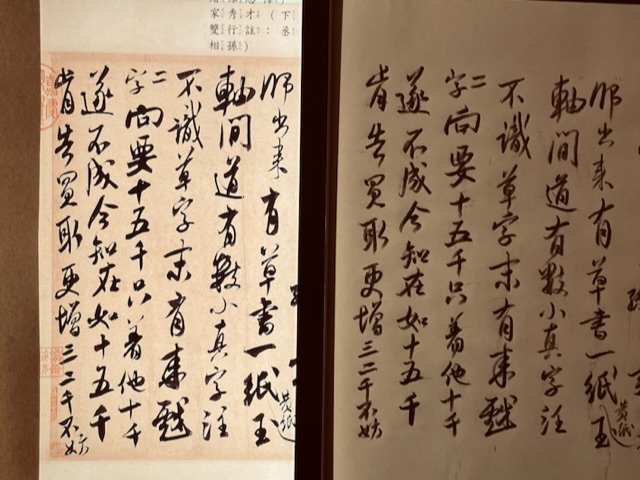 家秀才(下
雙行註:丞
相孫)
出來有草書一紙玉
黃紙
軸間道有數小真字注
不識草字末有來戲
二字向要十五千只著他十千
遂不成今知在如十五千
肯告買取更增三二千不妨
出來有草書一紙玉
黃紙
軸間道有數小真字注
不識草字末有來戲
二字向要十五千只著他十千
遂不成今知在如十五千
肯告買取更增三二千不妨